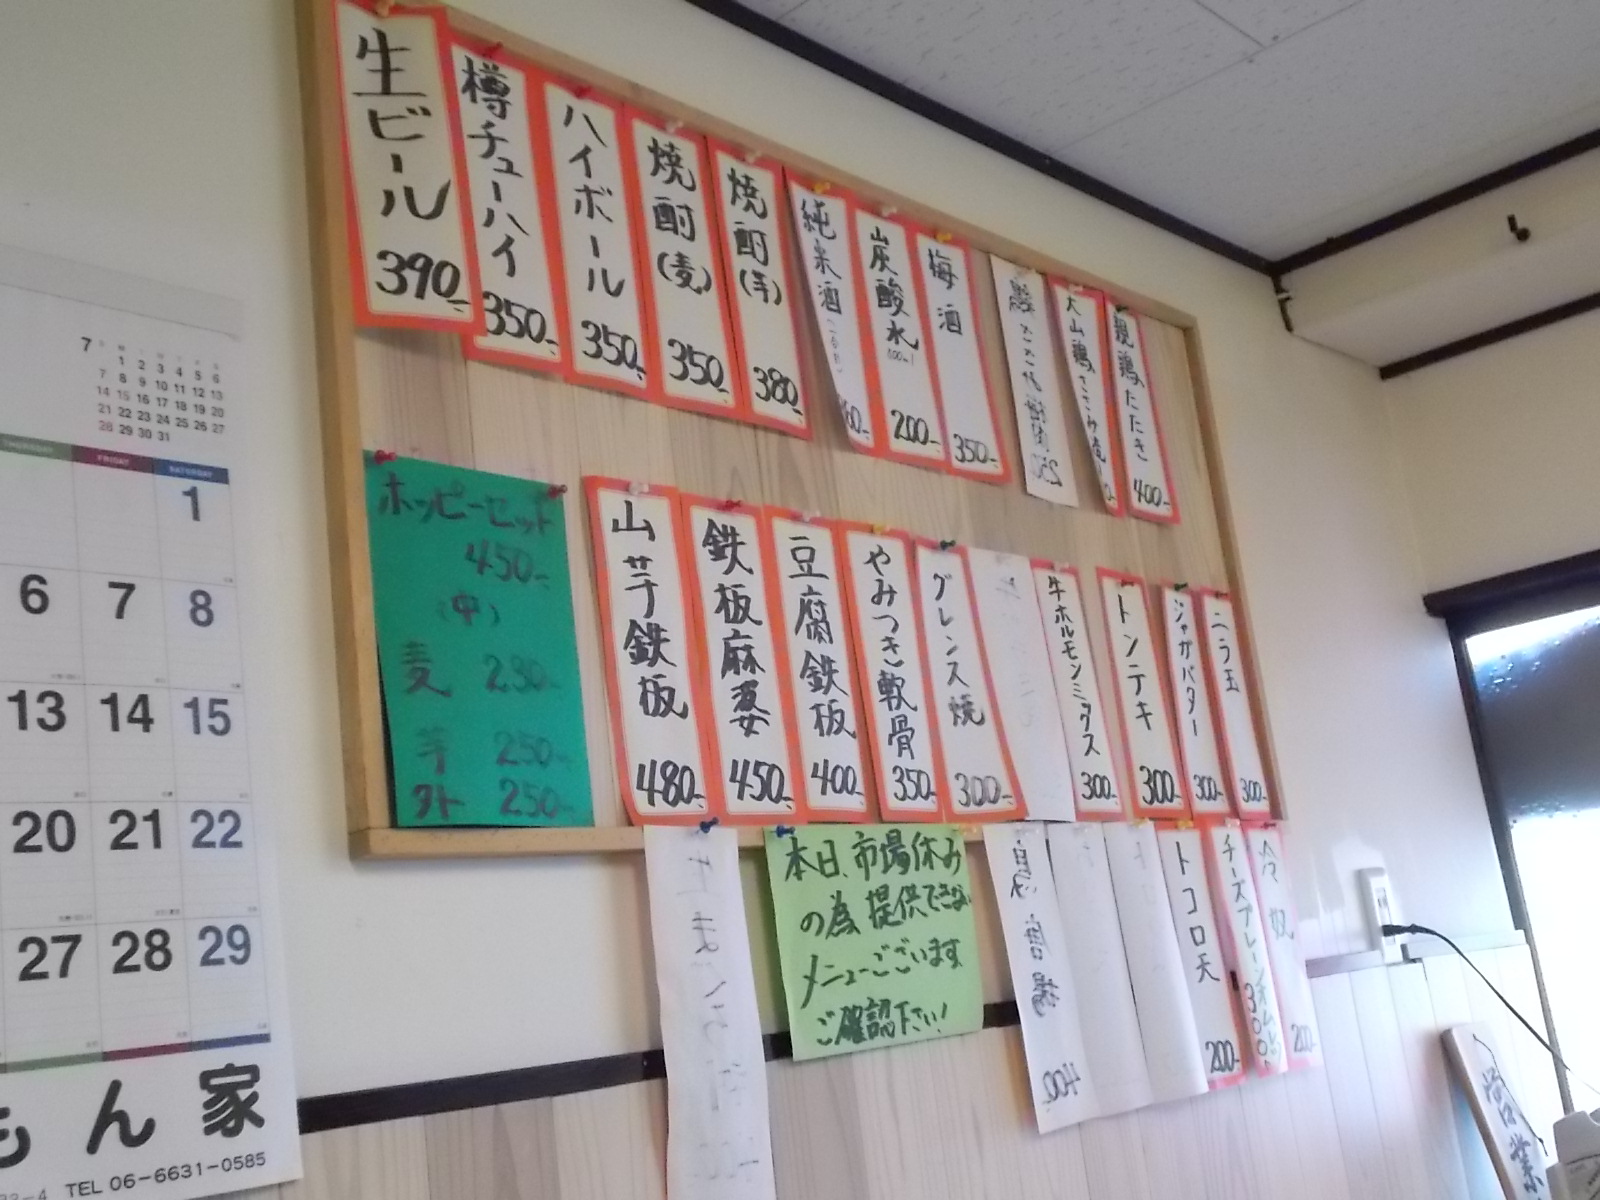 生ビール 390-
樽チューハイ 350-
ハイボール 350-
焼酎(麦) 350-
焼酎(芋) 380-
純米酒
炭酸水 200-
梅酒 350-
大山鶏ささみ
親鶏たたき 400-
ホッピーセット
450-
(中)
麦 230-
芋 250-
外 250-
山芋鉄板 480-
鉄板麻婆 450-
豆腐鉄板 400-
やみつき軟骨 350-
グレンス焼 300-
牛ホルモンミックス 300-
トンテキ 300-
ジャガバター 300-
ニラ玉 300-
本日、市場休み
の為提供できない
メニューございます
ご確認下さい!
400
トコロ天 200-
チーズプレーンオムレツ 300
冷奴 200-
営業
7
1 2 3 4 5 6
7 8 9 10 11 12 13
14 15 16 17 18 19 20
21 22 23 24 25 26 27
28 29 30 31
FRIDAY SATURDAY
1
6 7 8
13 14 15
20 21 22
27 28 29
もん家
TEL 06-6631-0585